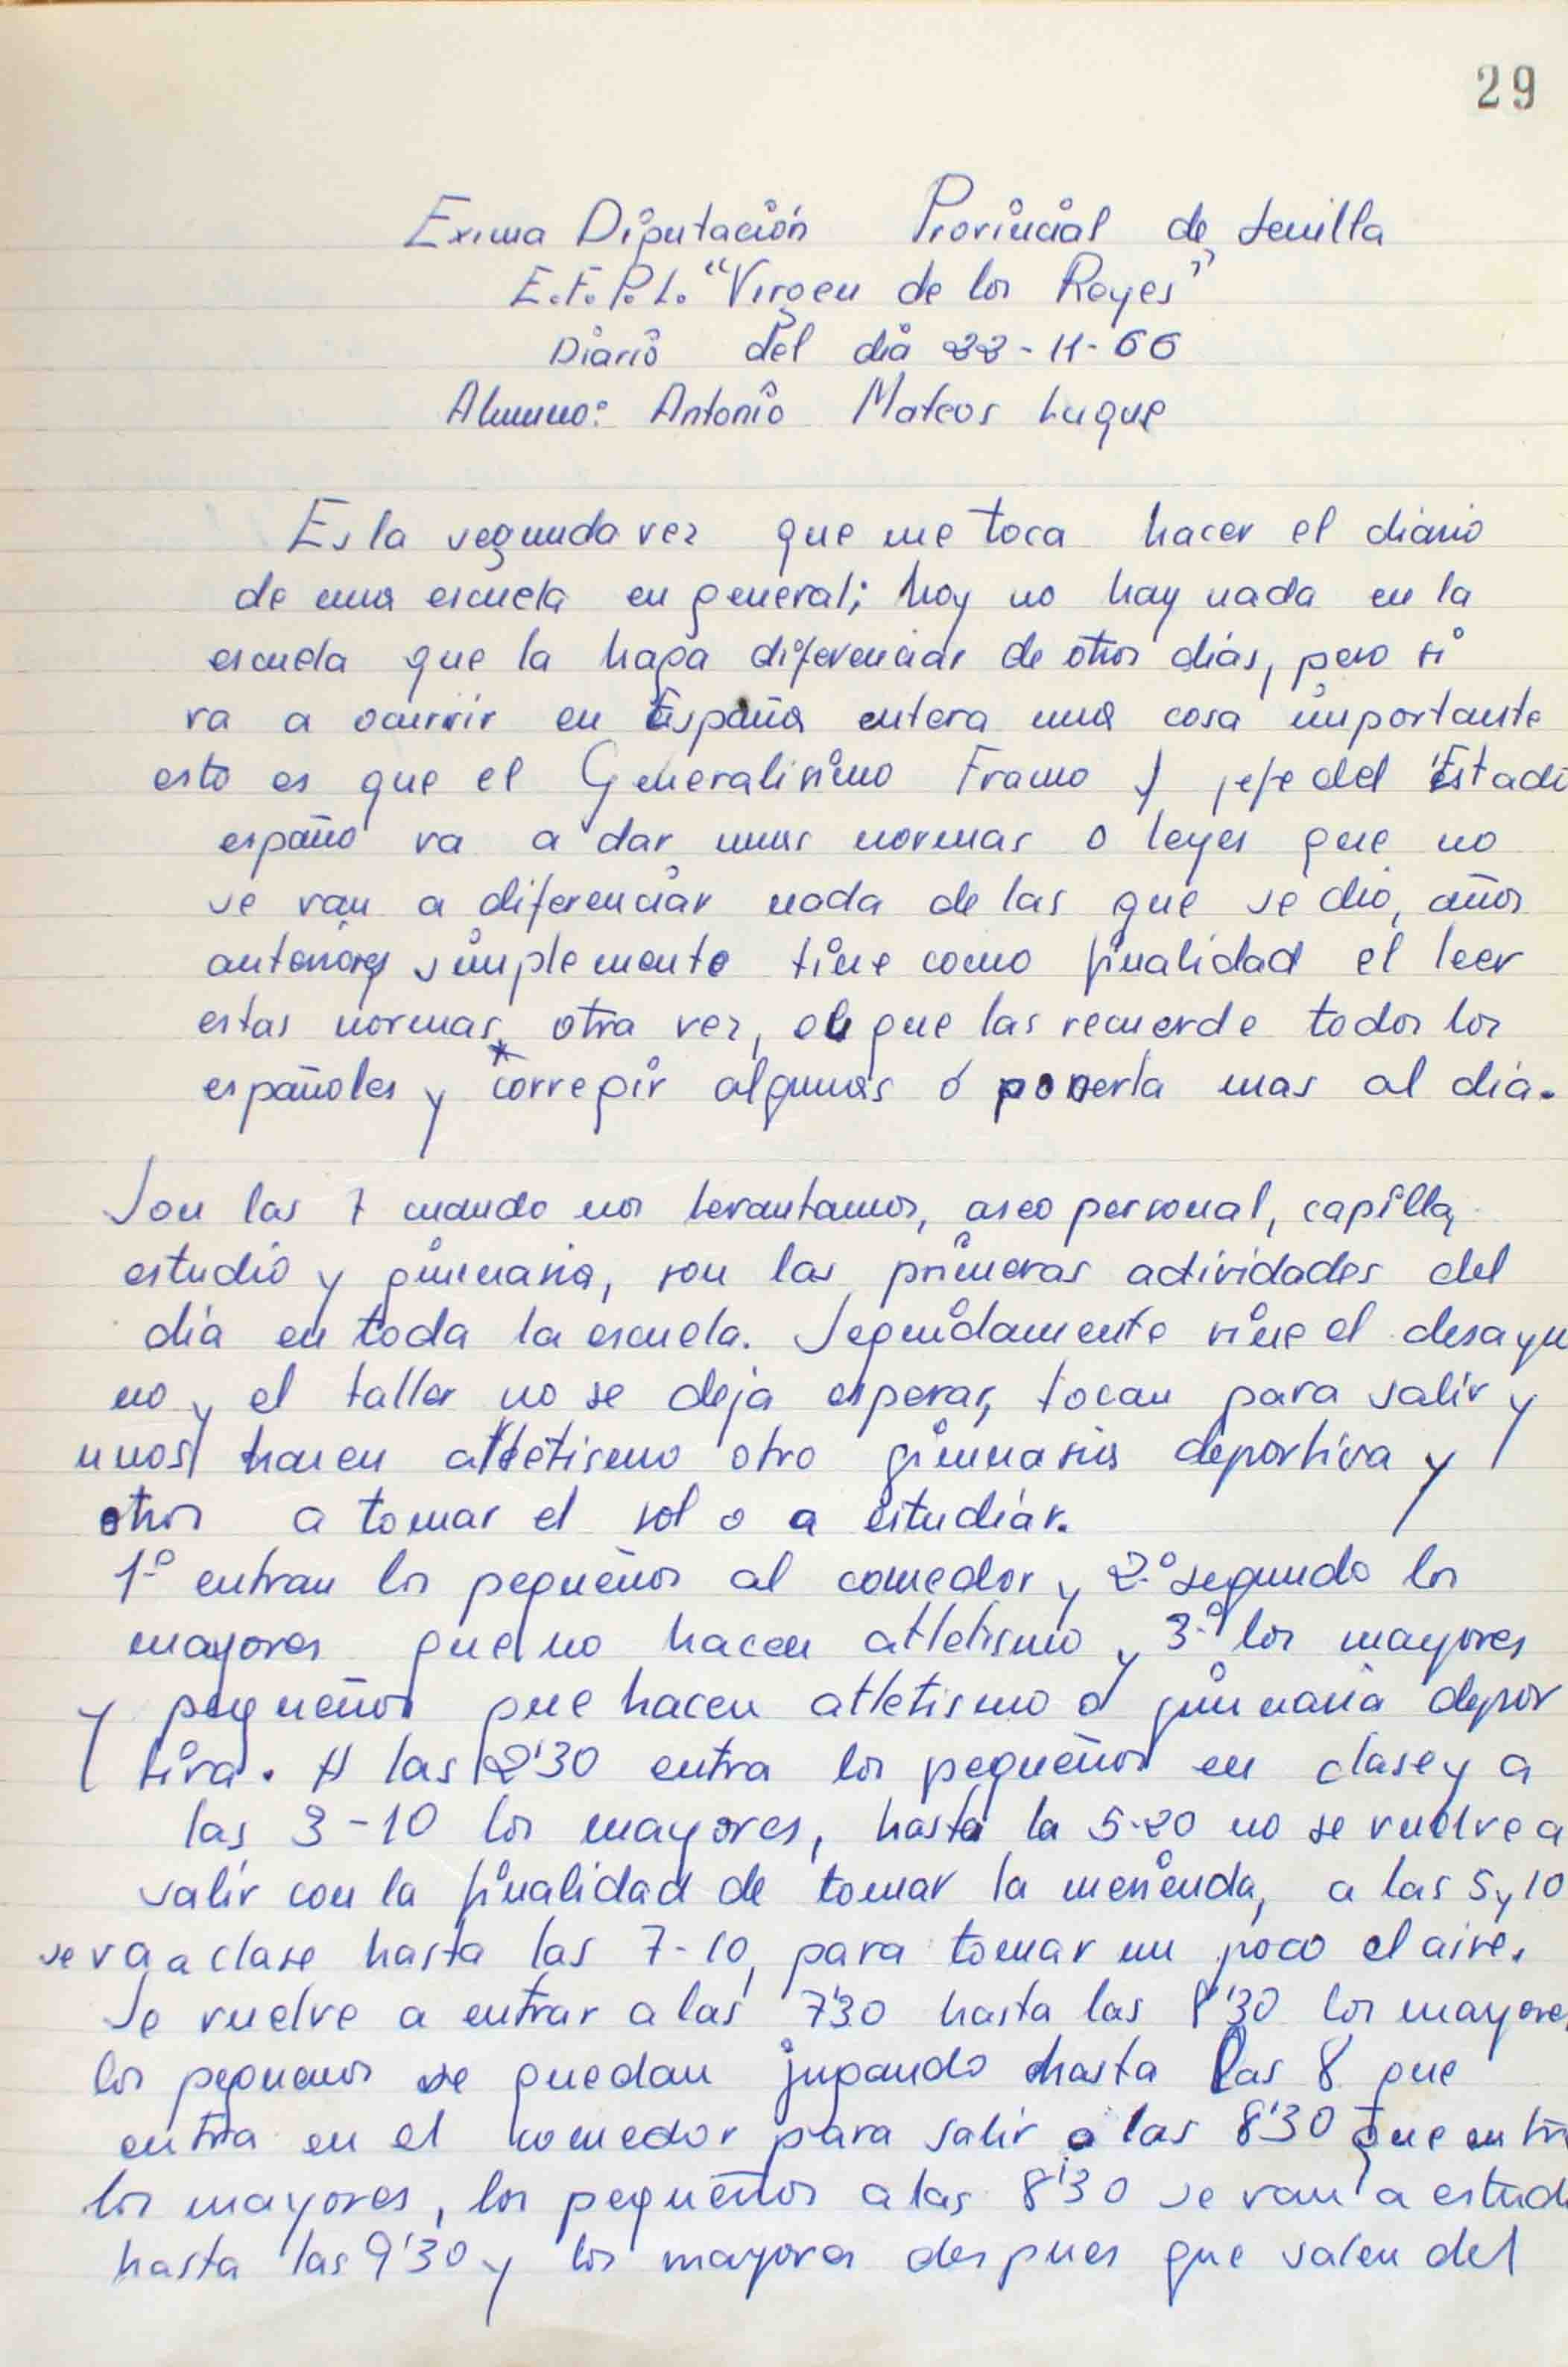 29
Exima Diputación Provincial de Sevilla
E.F.P.I. "Virgen de los Reyes"
Diario del dia 22-11-66
Alumno: Antonio Mateos Luque
Es la segunda vez que me toca hacer el diario
de una escuela en general; hoy no hay nada en la
escuela que la haga diferenciar de otros dias, pero si
va a ocurrir en España entera una cosa importante
esto es que el Generalisimo Franco y jefe del Estado
españo va a dar unas normas o leyes que no
se van a diferenciar nada de las que se dió, años
anteriores simplemente tine como finalidad el leer
estas normas, otra vez, el que las recuerde todos los
españoles y * corregir algunas ó ponerla mas al dia.
Son las 7 cuando nos levantamos, aseo personal, capilla,
estudio y gimnasia, son las primeras actividades del
día en toda la escuela. Seguidamente vine el desayu
no y el taller no se deja esperar, tocan para salir y
unos hacen atletismo otro gimnasia deportiva y
otros a tomar el sol o a estudiar.
1º entran los pequeños al comedor y 2º segundo los
mayores que no hacen atletismo y 3º los mayores
y pequeños que hacen atletismo o gimnasia depor
tiva. A las 2'30 entra los pequeños en clase y a
las 3-10 los mayores, hasta la 5-20 no se vuelve a
salir con la finalidad de tomar la merienda, a las 5 y 10
se va a clase hasta las 7-10, para tomar un poco el aire.
Se vuelve a entrar a las 7'30 hasta las 8'30 los mayores
los pequenos se quedan jugando hasta las 8 que
entra en el comedor para salir a las 8'30 que entra
los mayores, los pequeños a las 8'30 se van a estudi
hasta las 9'30 y los mayores despues que salen del